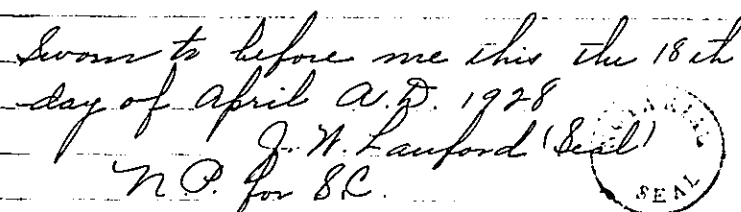 Sworn to before me this the 18th
day of April A.D. 1928
J. W. Lanford (Seal)
N.P. for S.C.
NOTARIAL
SEAL